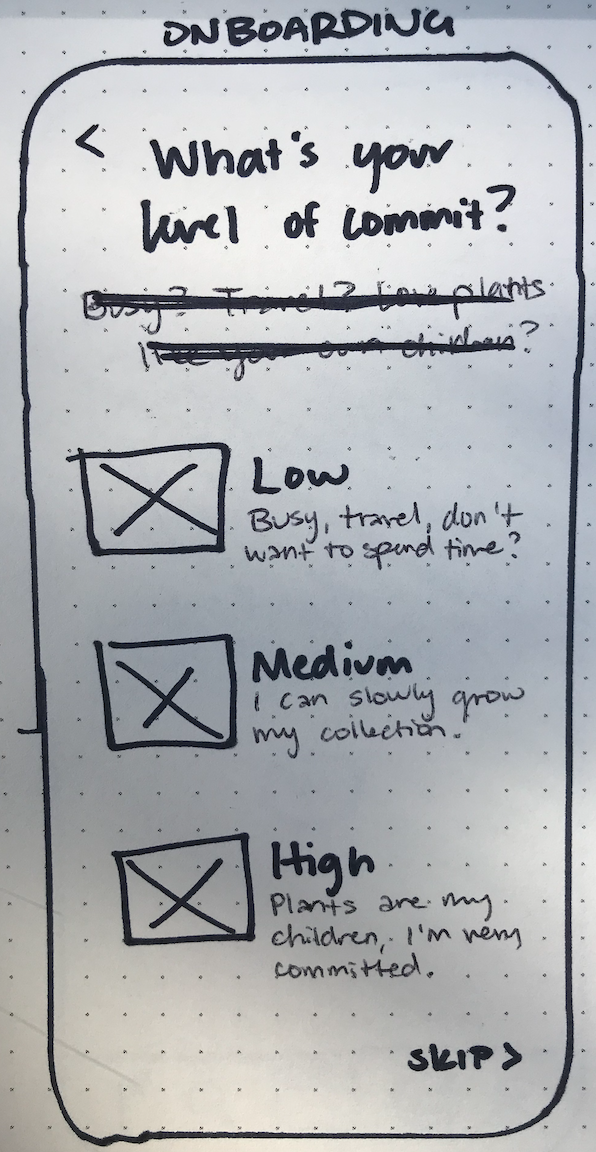 ONBOARDING
< What's your
level of commit?
Busy? Travel? Love plants
like your own children?
Low
Busy, travel, don't
want to spend time?
Medium
I can slowly grow
my collection.
High
Plants are my
children, I'm very
committed.
SKIP >